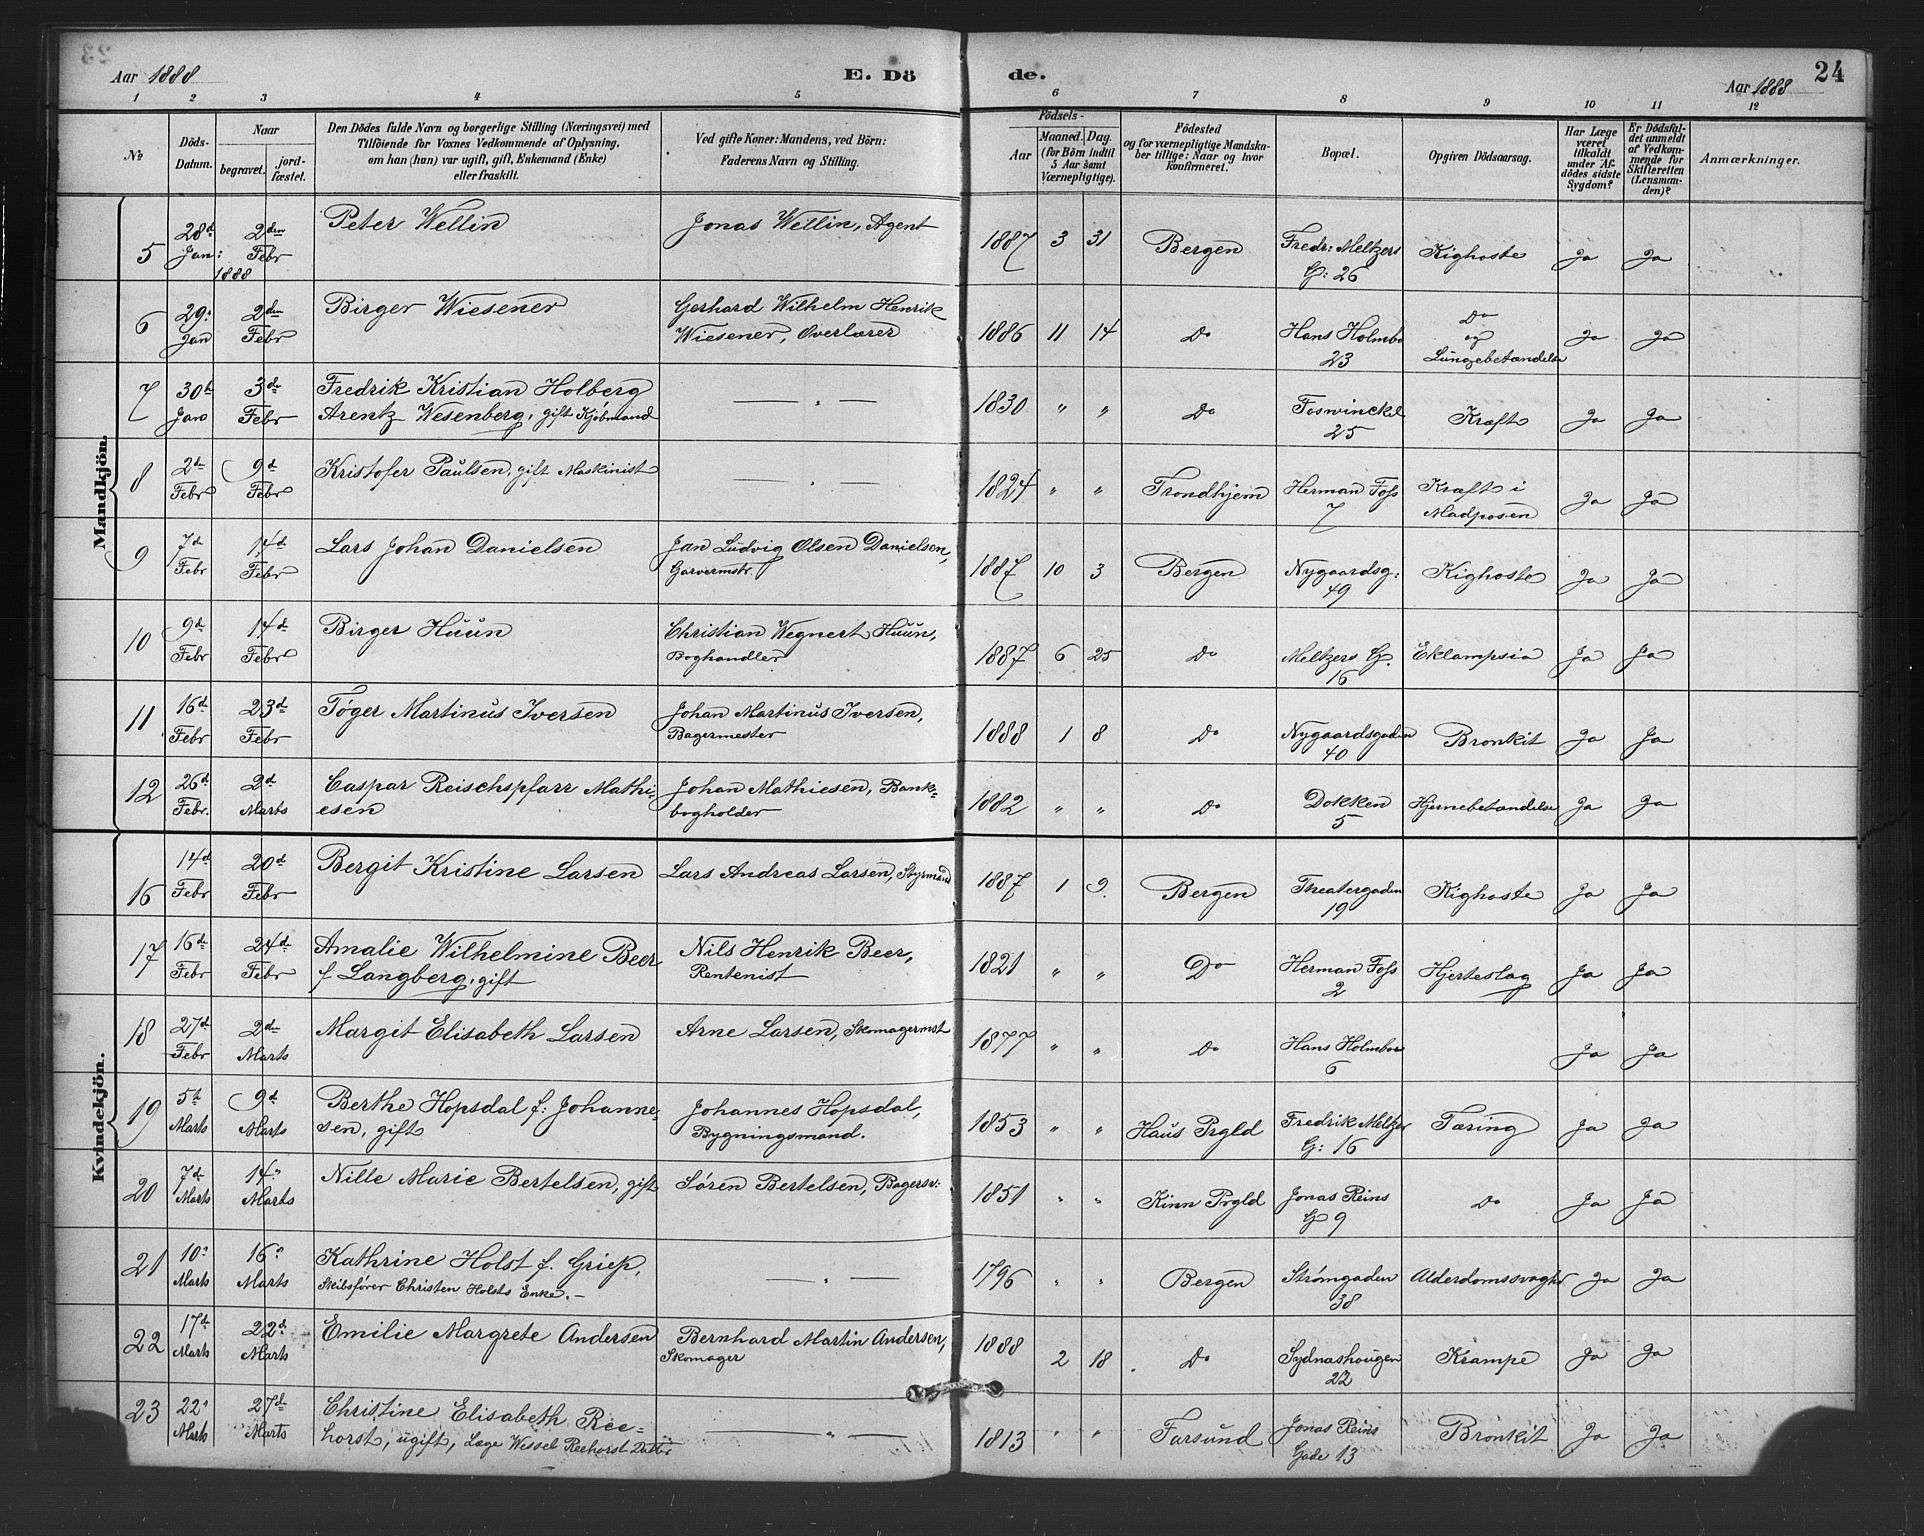 Aar 1888
E. Dö
de.
Aar 1888
24
1 2 3 4 5 6 7 8 9 10 11 12
No
Döds-Datum.
Naar
begravet.
jord-fæstet.
Den Dödes fulde Navn og borgerlige Stilling (Næringsvei) med
Tilföiende for Voxnes Vedkommende af Oplysning,
om han (hun) var ugift, gift, Enkemand (Enke)
eller fraskilt.
Ved gifte Koner: Mandens, ved Börn:
Faderens Navn og Stilling.
Födsels-
Aar
Maaned. Dag.
(for Börn indtil
5 Aar samt
Værnepligtige).
Födested
og for værnepligtige Mandska-
ber tillige: Naar og hvor
konfirmeret.
Bopæl.
Opgiven Dödsaarsag.
Har Læge
været
tilkaldt
under Af-
dödes sidste
Sygdom?
Er Dödsfal-
det anmeldt
af Vedkom-
mende for
Skifteretten
(Lensman-
den)?
Anmærkninger.
Mandkjön.
5 28d Jan: 1888 2den Febr Peter Wellin Jonas Wellin, Agent 1887 3 31 Bergen Fredr: Meltzers G: 26 Kighoste Ja Ja
6 29. Jan 2den Febr Birger Wiesener Gerhard Wilhelm Henrik
Wiesener, Overlærer 1886 11 14 Do Hans Holmbo 23 Do og Lungebetændelse Ja Ja
7 30t Jan 3d Febr Fredrik Kristian Holberg
Arentz Wesenberg, gift Kjøbmand — " — 1830 " " Do Foswinckel 25 Kræft Ja Ja
8 2d Febr 9d Febr Kristofer Paulsen, gift Maskinist — " — 1824 " " Trondhjem Herman Foss 7 Kræft i Madposen Ja Ja
9 7d Febr 14d Febr Lars Johan Danielsen Jan Ludvig Olsen Danielsen,
Garvermstr. 1887 10 3 Bergen Nygaardsg: 49 Kighoste Ja Ja
10 9d Febr 14d Febr Birger Huun Christian Wegnert Huun,
Boghandler 1887 6 25 Do Meltzers G. 16 Eklampsia Ja Ja
11 16d Febr 23d Febr Tøger Martinus Iversen Johan Martinus Iversen,
Bagermester 1888 1 8 Do Nygaardsgaden 40 Bronkit Ja Ja
12 26d Febr. 2d Marts Caspar Reischspfarr Mathi-
esen Johan Mathiesen, Bank-
bogholder 1882 " " Do Dokken 5 Hjernebetændelse Ja Ja
Kvindekjön.
16 14d Febr 20d Febr Bergit Kristine Larsen Lars Andreas Larsen, Styrmand 1887 1 9 Bergen Theatergaden 19 Kighoste Ja Ja
17 16d Febr 24d Febr Amalie Wilhelmine Beer
f Langberg, gift Nils Henrik Beer,
Rentenist 1821 " " Do Herman Foss 2 Hjerteslag Ja Ja
18 27d Febr 2d Marts Margit Elisabeth Larsen Arne Larsen, Skomagermst 1877 " " Do Hans Holmboe 6 Ja Ja
19 5t Marts 9d Marts Berthe Hopsdal f: Johanne-
sen, gift Johannes Hopsdal,
Bygningsmand. 1853 " " Haus Prgld Fredrik Meltzer G: 16 Tæring Ja Ja
20 7d Marts 14" Marts Nille Marie Bertelsen, gift Søren Bertelsen, Bagersv: 1851 " " Kinn Prgld Jonas Reins G 9 Do Ja Ja
21 10" Marts 16" Marts Kathrine Holst f. Griep,
Skibsfører Christen Holsts Enke. — — " — 1796 " " Bergen Strømgaden 38 Alderdomssvaghd Ja Ja
22 17d Marts 22d Marts Emilie Margrete Andersen Bernhard Martin Andersen,
Skomager 1888 2 18 Do Sydnashougen 22 Krampe Ja Ja
23 22" Marts 27d Marts Christine Elisabeth Ree-
horst, ugift, Læge Wessel Reehorst Datter — " — 1813 " " Farsund Jonas Reins Gade 13 Bronkit Ja Ja